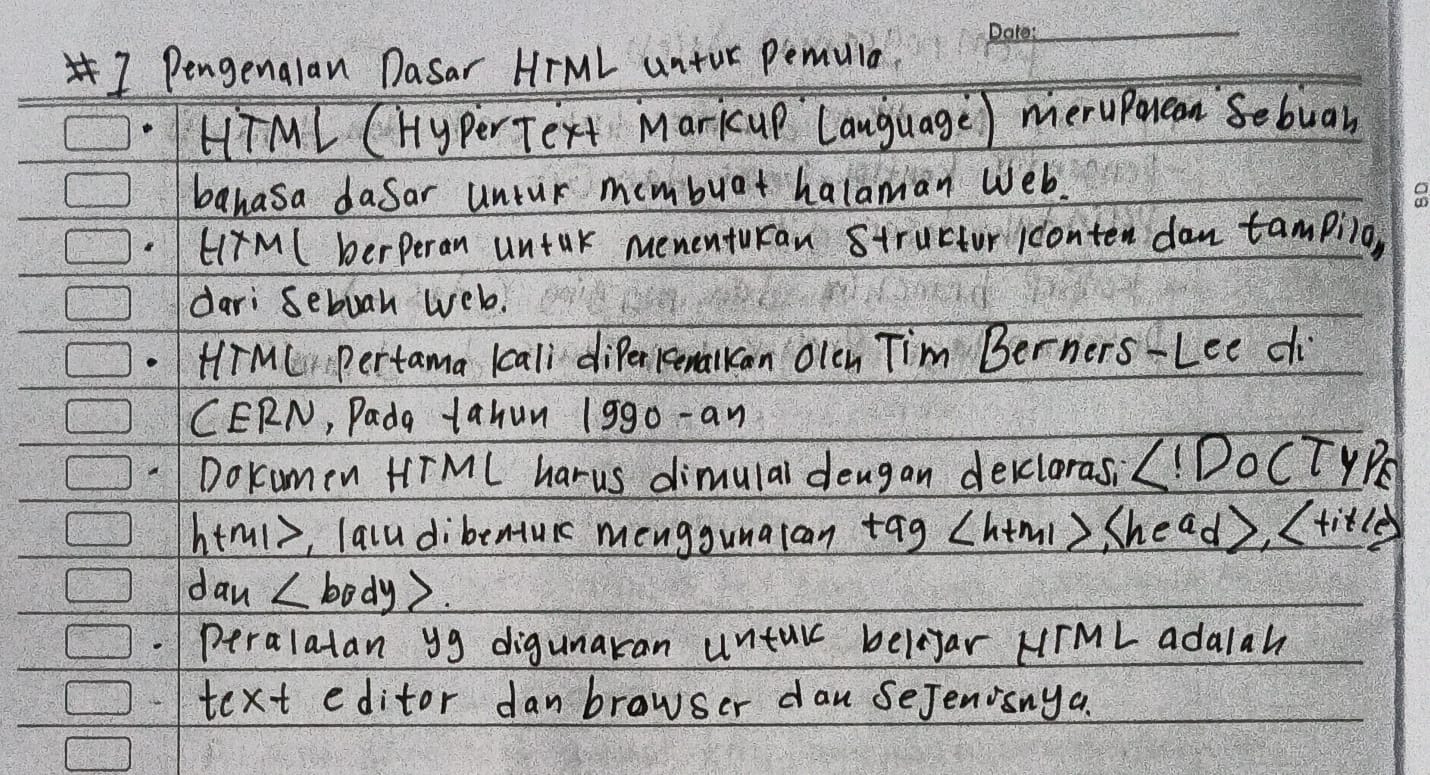 Date:
#1 Pengenalan Dasar HTML untuk Pemula.
• HTML (HyperText Markup Language) merupakan sebuah
bahasa dasar untuk membuat halaman web.
• HTML berperan untuk menentukan struktur konten dan tampilan
dari sebuah web.
• HTML pertama kali diperkenalkan oleh Tim Berners-Lee di
CERN, Pada tahun 1990-an
• Dokumen HTML harus dimulai dengan deklarasi <!DOCTYPE
html>, lalu dibentuk menggunakan tag <html>, <head>, <title>
dan <body>.
• Peralatan yg digunakan untuk belajar HTML adalah
text editor dan browser dan sejenisnya.